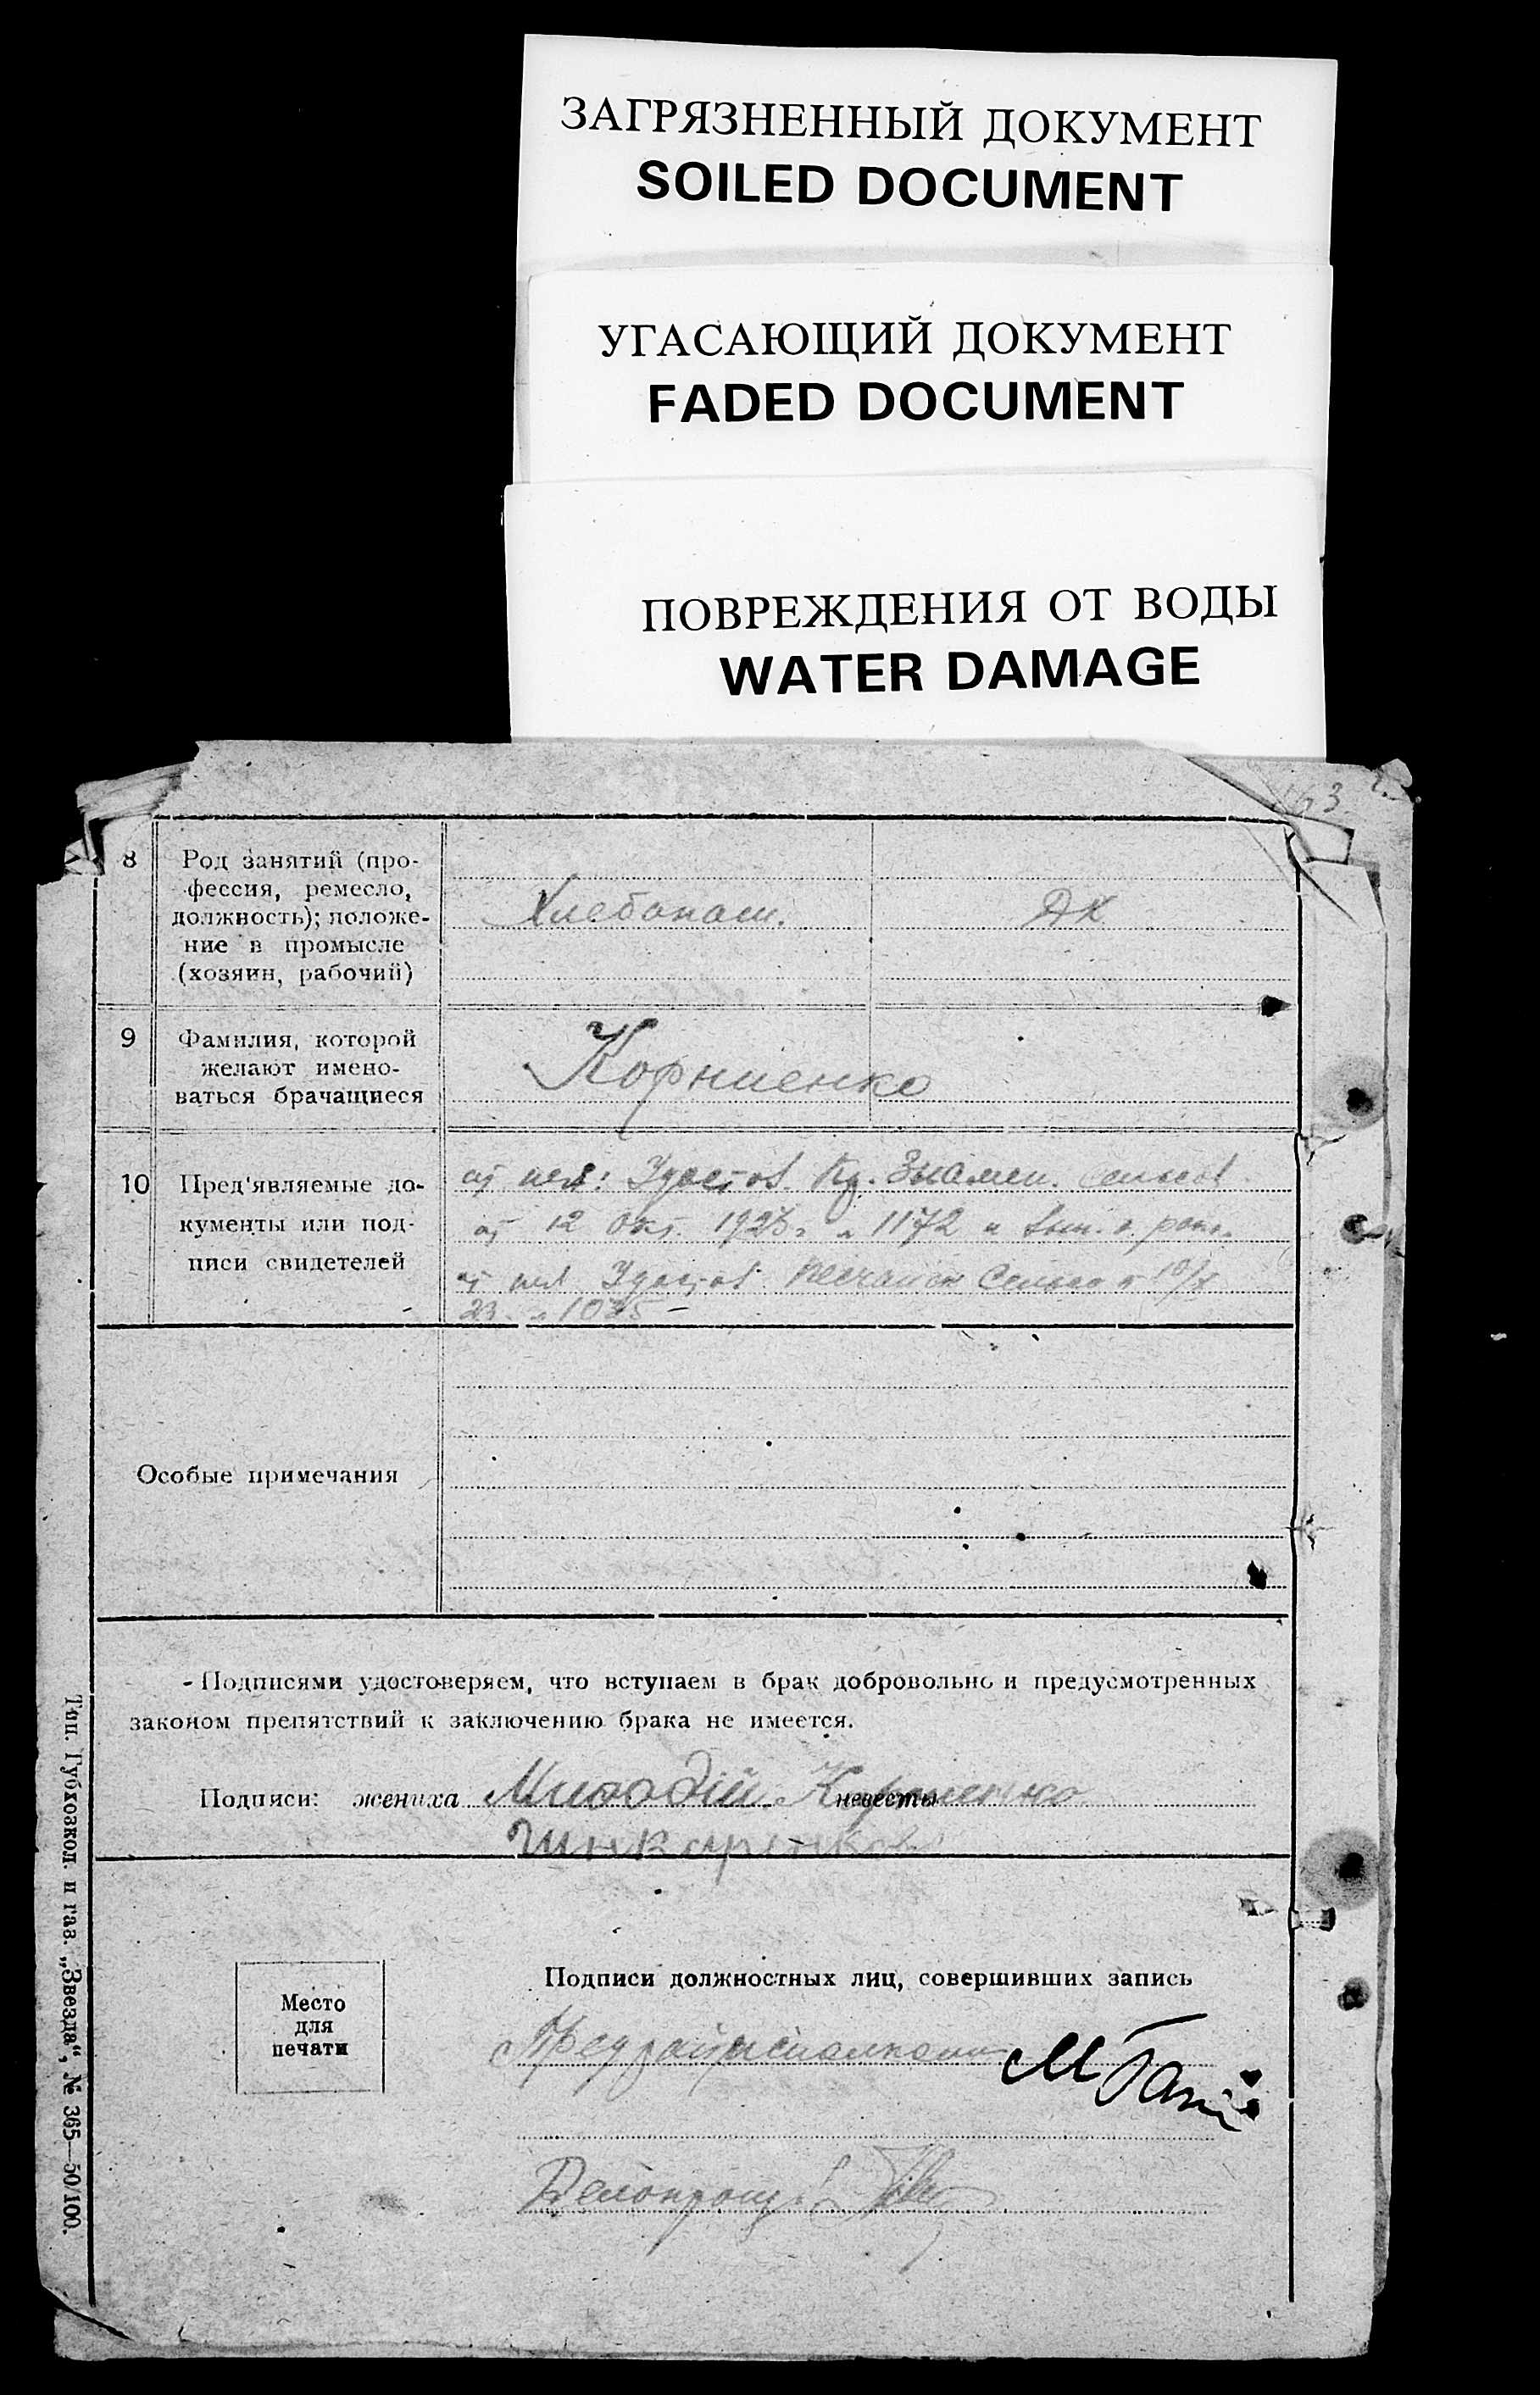 ЗАГРЯЗНЕННЫЙ ДОКУМЕНТ
SOILED DOCUMENT
УГАСАЮЩИЙ ДОКУМЕНТ
FADED DOCUMENT
ПОВРЕЖДЕНИЯ ОТ ВОДЫ
WATER DAMAGE
163
8
Род занятий (про-
фессия, ремесло,
должность); положе-
ние в промысле
(хозяин, рабочий)
Хлебопаш.
ДХ
9
Фамилия, которой
желают имено-
ваться брачащиеся
Корниенко
10
Пред'являемые до-
кументы или под-
писи свидетелей
Удостов. Знамен. сельсов.
от 12 Окт. 1923 1172 и
Удостов. Песчан Сельсо 10/X
23 1035
Особые примечания
Подписями удостоверяем, что вступаем в брак добровольно и предусмотренных
законом препятствий к заключению брака не имеется.
Подписи: жениха Мифодій Корниенко невесты
Шнкаренкова
Подписи должностных лиц, совершивших запись
Место
для
печати
Предрайисполкома
Делопроиз.
Тип. Губхозкол. и газ. „Звезда", № 365—50/100.